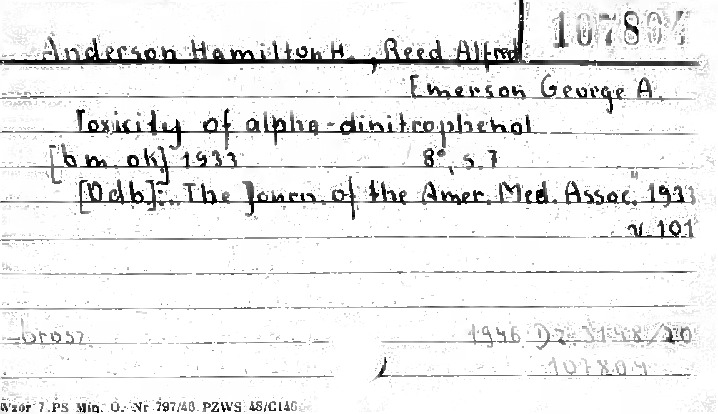 107804
Anderson Hamilton H., Reed Alfred
Emerson George A.
Toxicity of alpha-dinitrophenol
[b m. ok] 1933 8°, s. 7
[Odb]: "The Journ. of the Amer. Med. Assoc." 1933
v. 101
brosz. 1946 Dz. 3148/20
107804
Wzór 7 PS Min. O. Nr 797/46 PZWS 48/C146